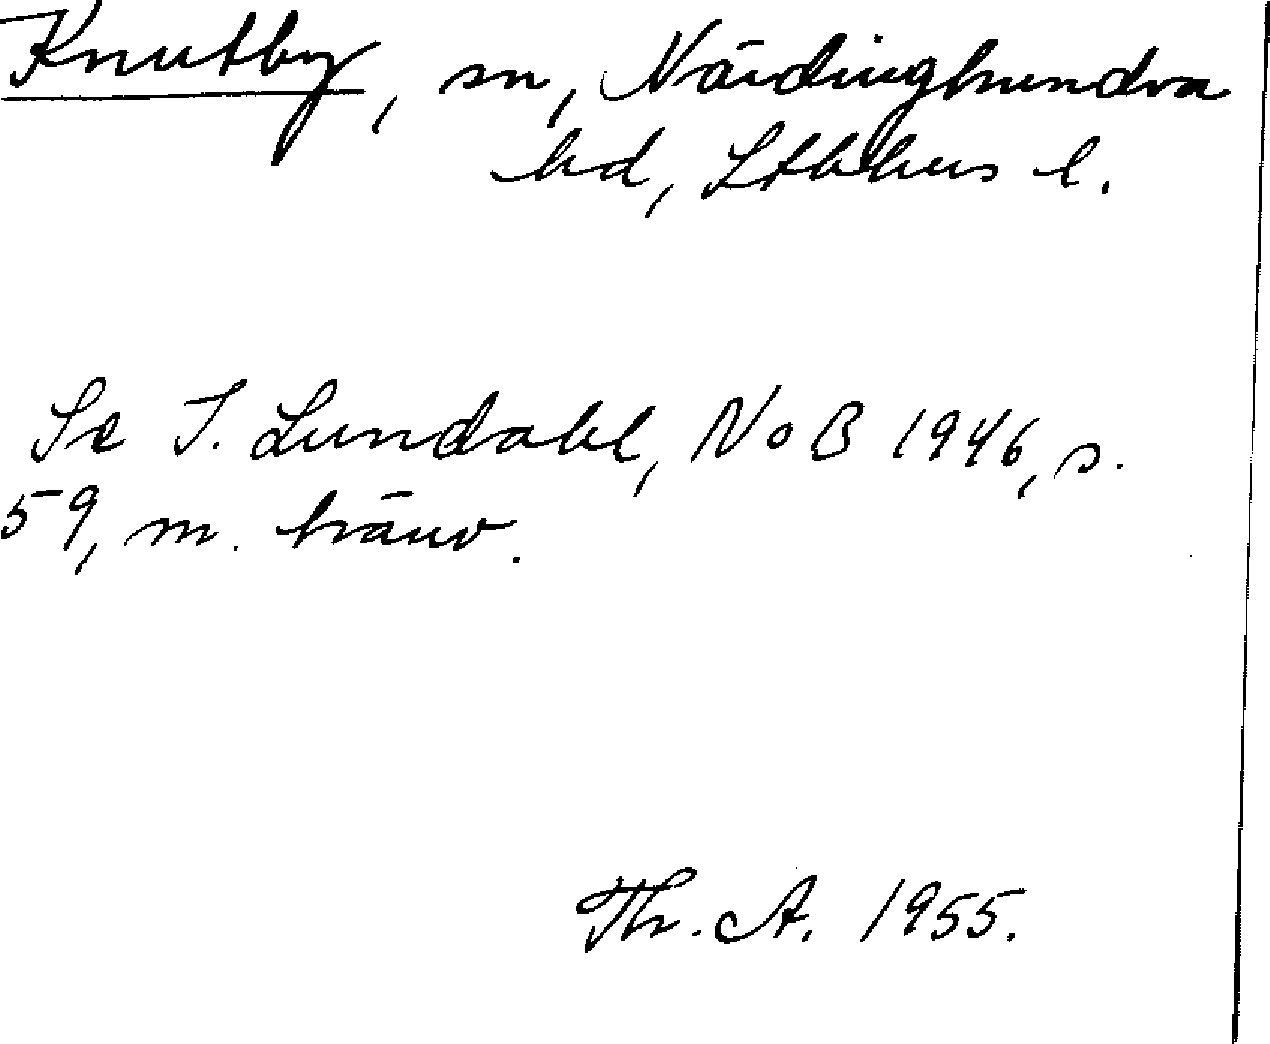 Knutby, sn, Närdinghundra
hd, Sthlms l.
Se I. Lundahl, NoB 1946, s.
59, m. hänv.
Th. A. 1955.